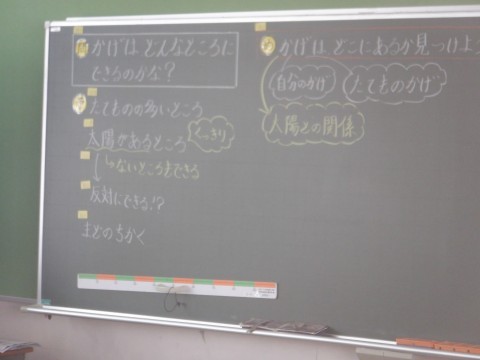 かげは、どんなところに
できるのかな？
たてものの多いところ
太陽があるところ
くっきり
ないところもできる
反対にできる!?
まどのちかく
かげは、どこにあるか見つけよう
自分のかげ
たてものかげ
太陽との関係